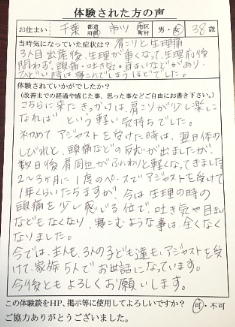 体験された方の声
お住まい: 千葉 都道府県 市川 市区町村 男・女 38歳
当時気になっていた症状は? 肩こりと生理痛
3人目出産後、生理が重くなって、生理前後
関わらず、頭痛・吐き気・目まいなどがあり、
ひどい時は寝こんでしまうほどでした。
体験されていかがでしたか?
(改善までの経過や感じた事、思った事などご自由にお書き下さい。)
こちらに来たきっかけは肩こりが少し楽に
なれば という軽い気持ちでした。
初めてアジャストを受けた時は、翌日体の
しびれと、頭痛などの反応が出ましたが、
数日後 肩周囲がふわっと軽くなってきました。
2〜3ヶ月に1度のペースでアジャストを受けて
1年くらいたちますが、今は生理の時の
頭痛を少し感じる位で、吐き気や目まい
などもなくなり、寝こむような事は、全くなく
なりました。
今では、主人も、3人の子ども達も、アジャストを受
けて、家族5人でお世話になっています。
今後とも よろしくお願いします。
この体験談をHP、掲示等に使用してよろしいですか? 可・不可
ご協力ありがとうございました。